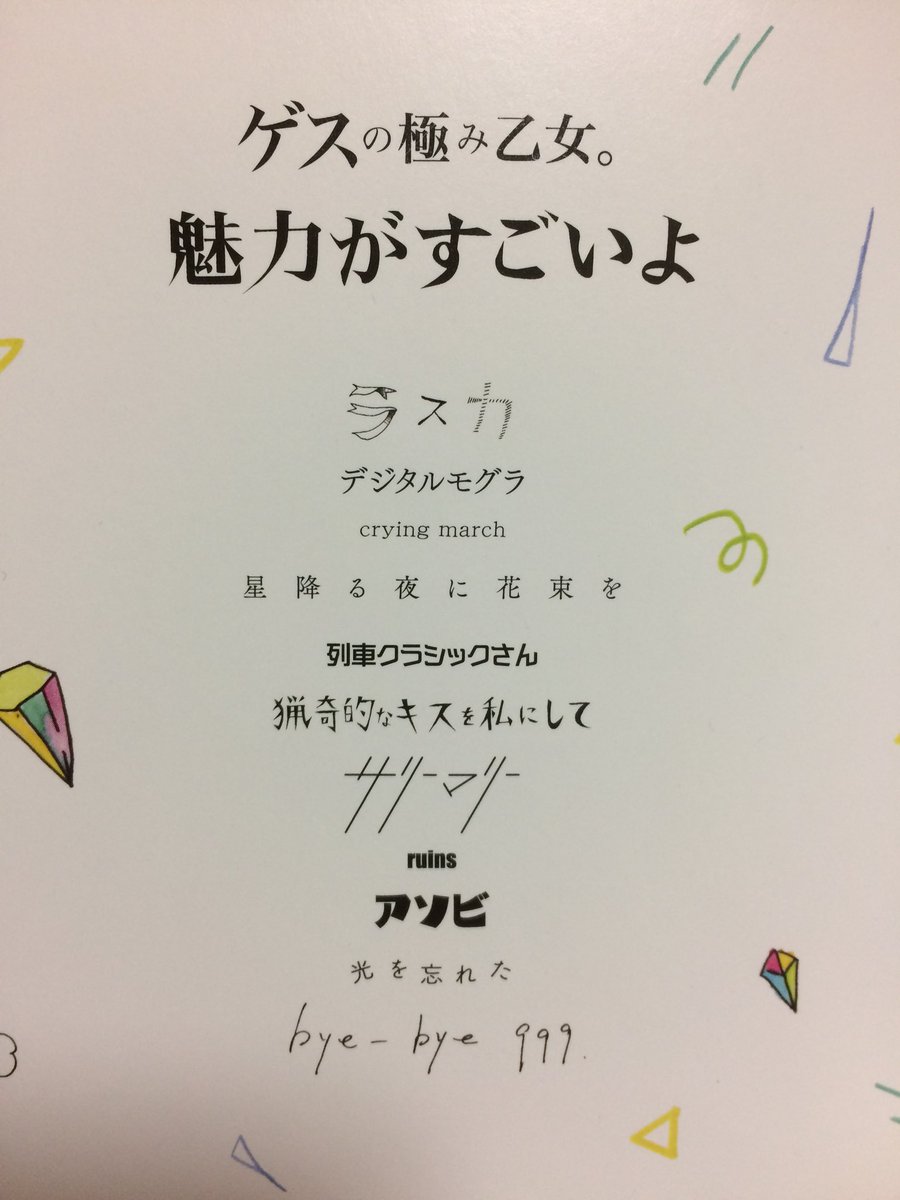 ゲスの極み乙女。
魅力がすごいよ
ラスカ
デジタルモグラ
crying march
星降る夜に花束を
列車クラシックさん
猟奇的なキスを私にして
サリーマリー
ruins
アソビ
光を忘れた
bye-bye 999.